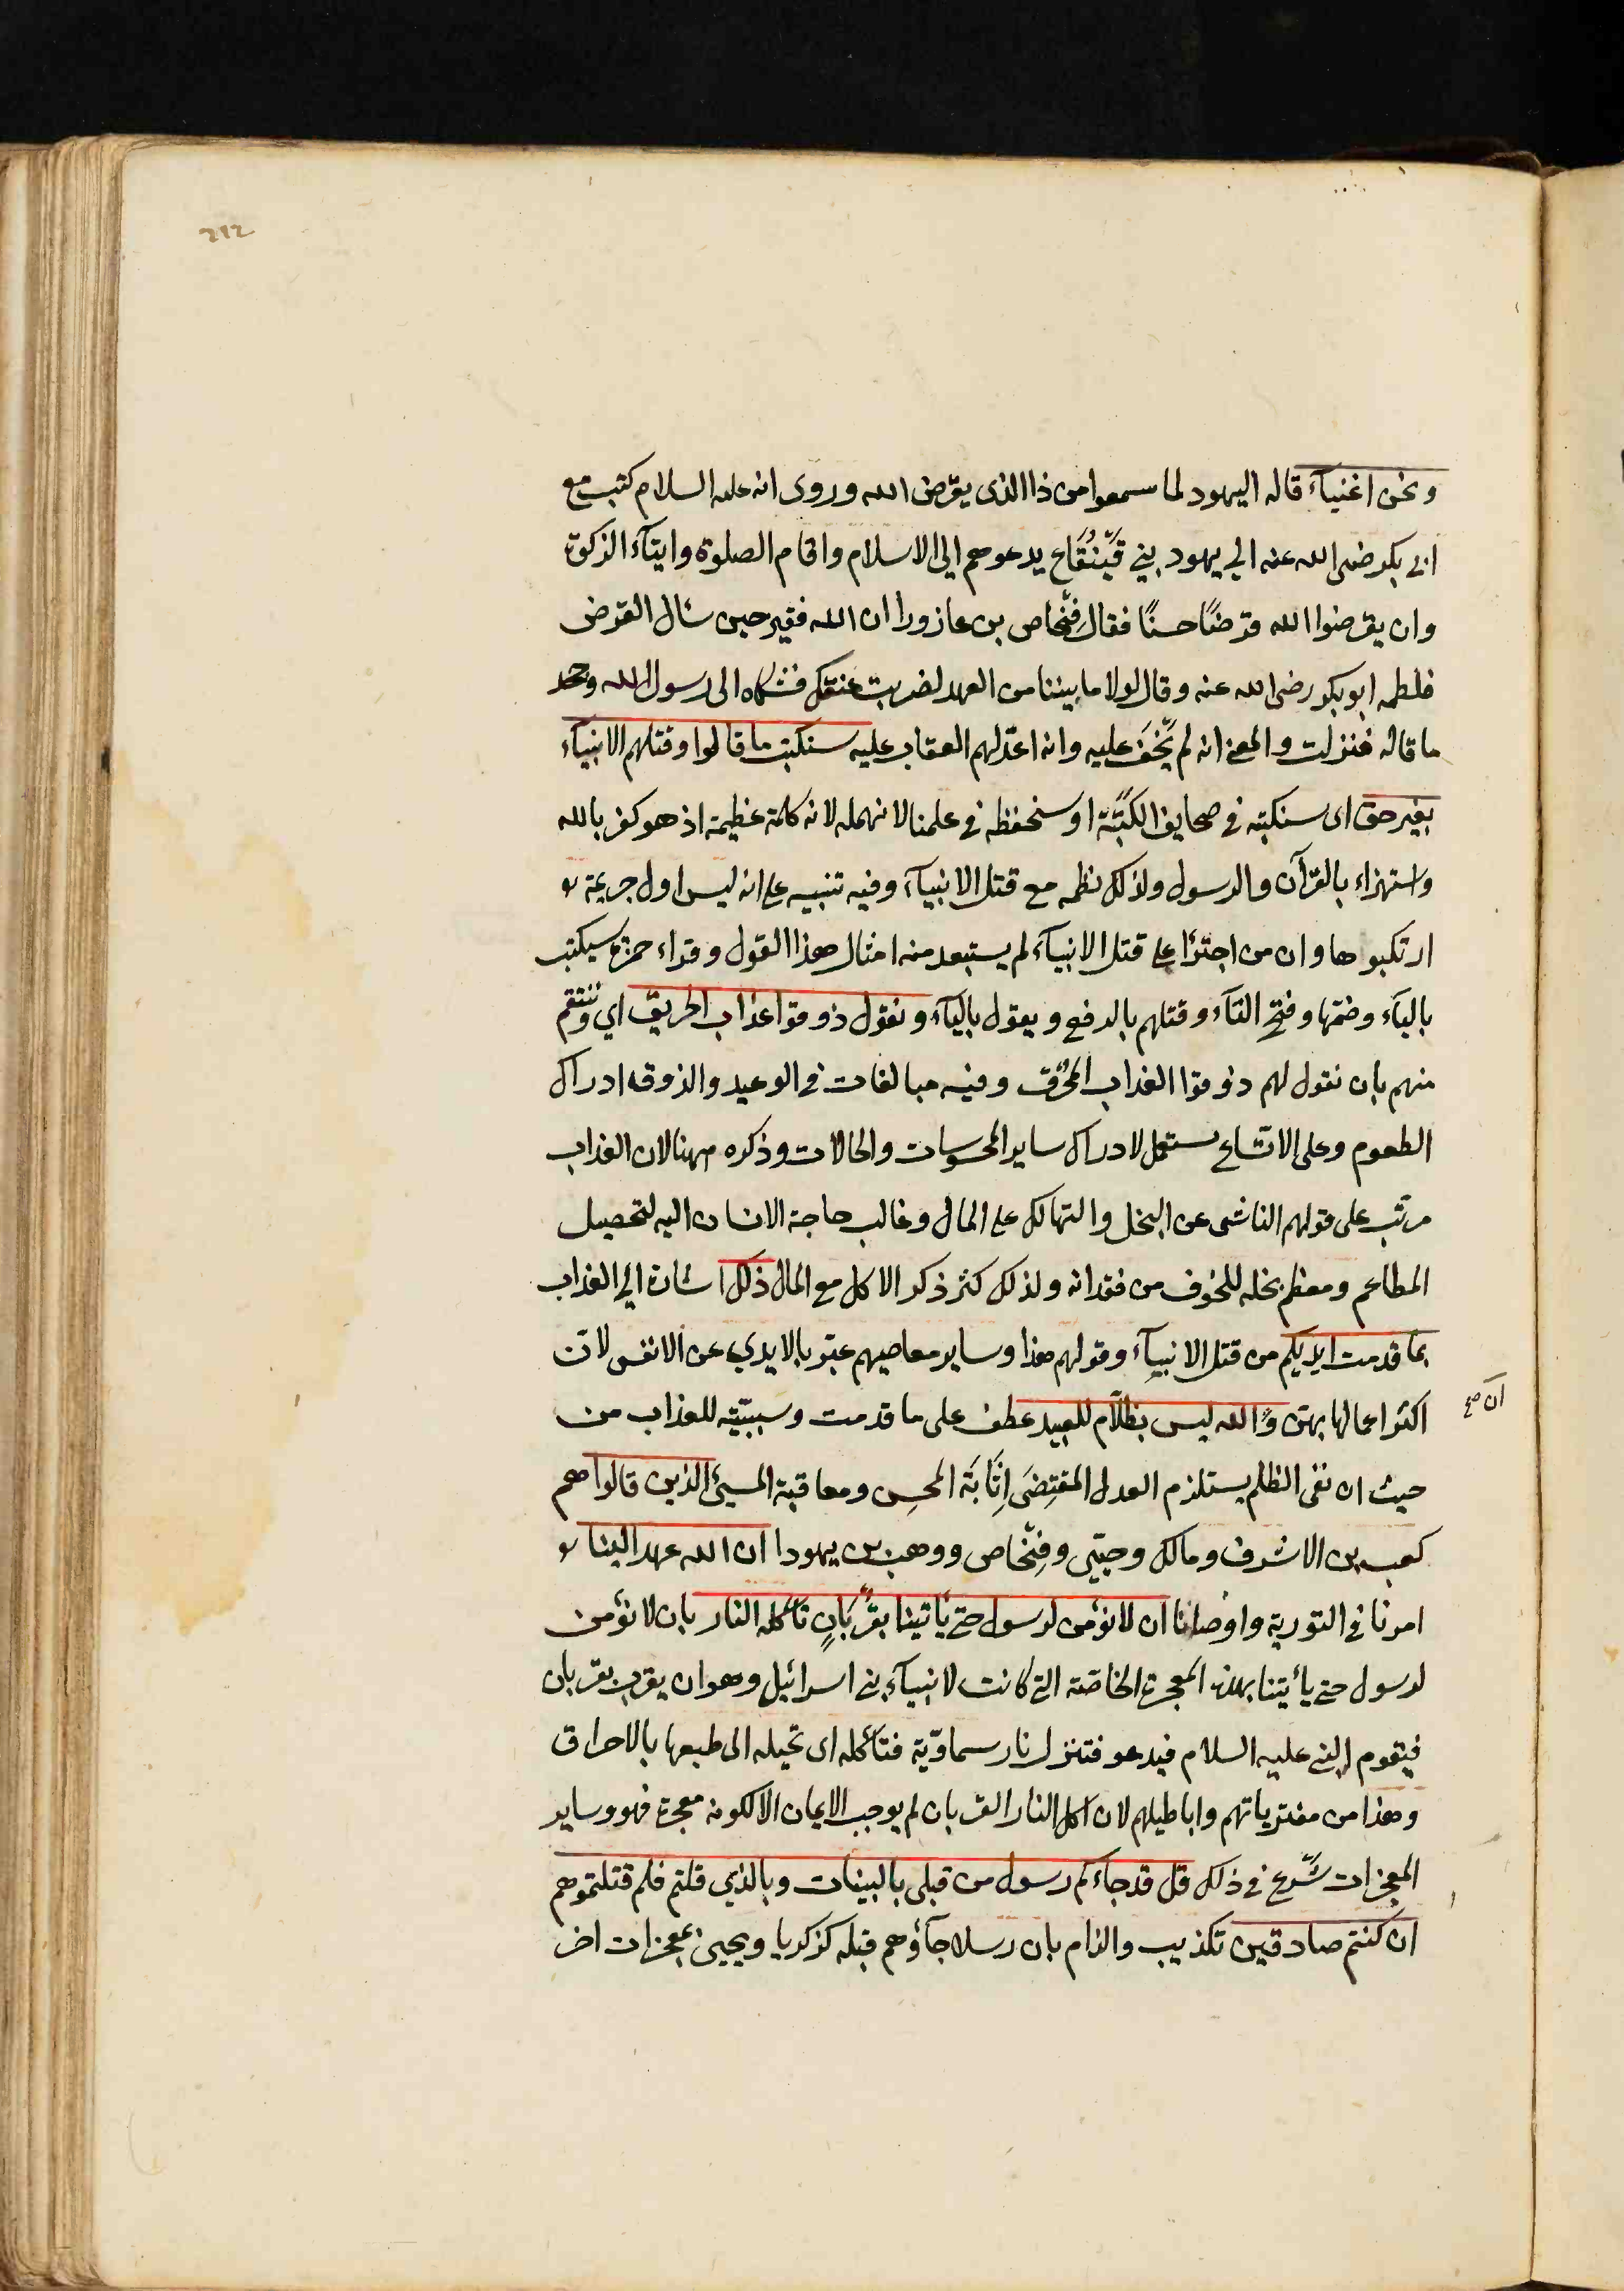 212
ونحن اغنيآء قاله اليهود لما سمعوا من ذا الذى يقرض الله وروى انه عليه السلام كتب مع
ابى بكر رضى الله عنه الى يهود بني قَيْنُقَاع يدعوهم الى الاسلام واقام الصلوة وايتآء الزكوة
وان يقرضوا الله قرضًا حسنًا فقال فِنْحاص بن عازورا ان الله فقير حين سال القرض
فلطمه ابو بكر رضى الله عنه وقال لولا ما بيننا من العهد لضربت عنقك فشكاه الى رسول الله وجحد
ما قاله فنزلت والمعنى انه لم يَخْفَ عليه وانه اعدّ لهم العقاب عليه سنكتب ما قالوا وقتلهم الانبيآء
بغير حق اى سنكتبه في صحايف الكَتَبَة او سنحفظه في علمنا لا نهمله لانه كلمة عظيمة اذ هو كفر بالله
واستهزاء بالقرآن والرسول ولذلك نظمه مع قتل الانبيآء وفيه تنبيه على انه ليس اول جريمة
ارتكبوها وان من اجترأ على قتل الانبيآء لم يستبعد منه امثال هذا القول وقراء حمزة سيكتب
باليآء وضمّها وفتح التآء وقتلهم بالرفع ويقول باليآء ونقول ذوقوا عذاب الحريق اي وننتقم
منهم بان نقول لهم ذوقوا العذاب المحُرْق وفيه مبالغات في الوعيد والذوق ادراك
الطعوم وعلى الاتّساع يستعمل لادراك ساير المحسوسات والحالات وذكره ههنا لان العذاب
مرتب على قولهم الناشى عن البخل والتهالك على المال وغالب حاجة الانسان اليه لتحصيل
المطاعم ومعظم بخله للخوف من فقدانه ولذلك كثر ذكر الاكل مع المال ذلك اشارة الى العذاب
بما قدمت ايديكم من قتل الانبيآء وقولهم هذا وساير معاصيهم عبّر بالايدي عن الانفس لان
اكثر اعمالها بهن و الله ليس بظلّام للعبيد عطف على ما قدمت وسببيّته للعذاب من
انّ صح
حيث ان نفى الظلم يستلزم العدل المقتِضَى اِثَابَة المحسِن ومعاقبة المسئ الذين قالوا هم
كعب بن الاشرف ومالك وحيّى وفِنْحاص ووهب بن يهودا ان الله عهد الينا
امرنا في التورية واوصانا ان لا نؤمن لرسول حتى يأتينا بقُرْبَانٍ تأكله النار بان لا نؤمن
لرسول حتى يأتينا بهذه المعجزة الخاصّة التي كانت لانبيآء بنى اسرائيل وهو ان يقرب بقربان
فيقوم النبى عليه السلام فيدعو فتنزل نار سماويّة فتأكله اى تحيله الى طبعها بالاحراق
وهذا من مفترياتهم واباطيلهم لان اكل النار القربان لم يوجب الايمان الا لكونه معجزة فهو وساير
المعجزات شَرْع في ذلك قل قد جآءكم رسول من قبلى بالبينات وبالذي قلتم فلم قتلتموهم
ان كنتم صادقين تكذيب والزام بان رسلا جآؤهم قبله كزكريا ويحيى بمعجزات اخر